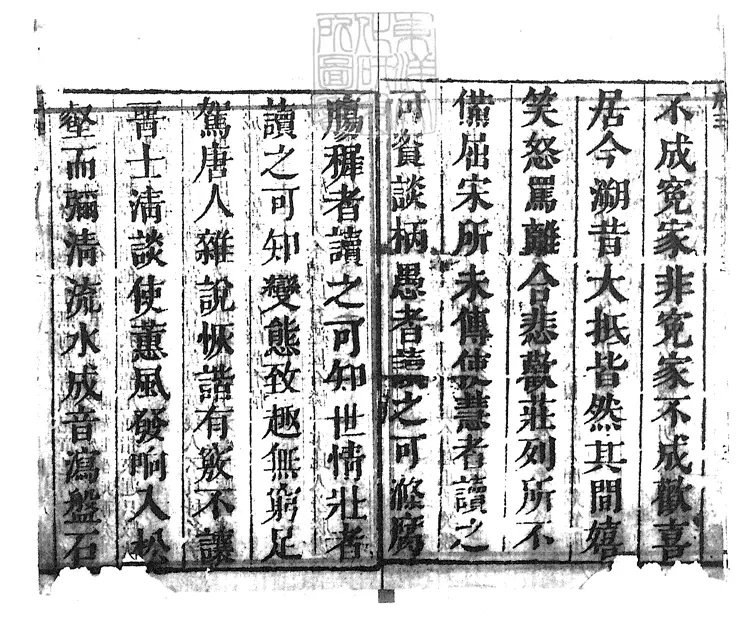 不成冤家非冤家不成歡喜
居今溯昔大抵皆然其間嬉
笑怒罵離合悲歡莊列所不
備屈宋所未傳使慧者讀之
可資談柄愚者讀之可滌腐
腸穉者讀之可知世情壯者
讀之可知變態致趣無窮足
駕唐人雜說恢諧有竅不讓
晋士清談使蕙風發响入松
壑而彌清流水成音瀉盤石